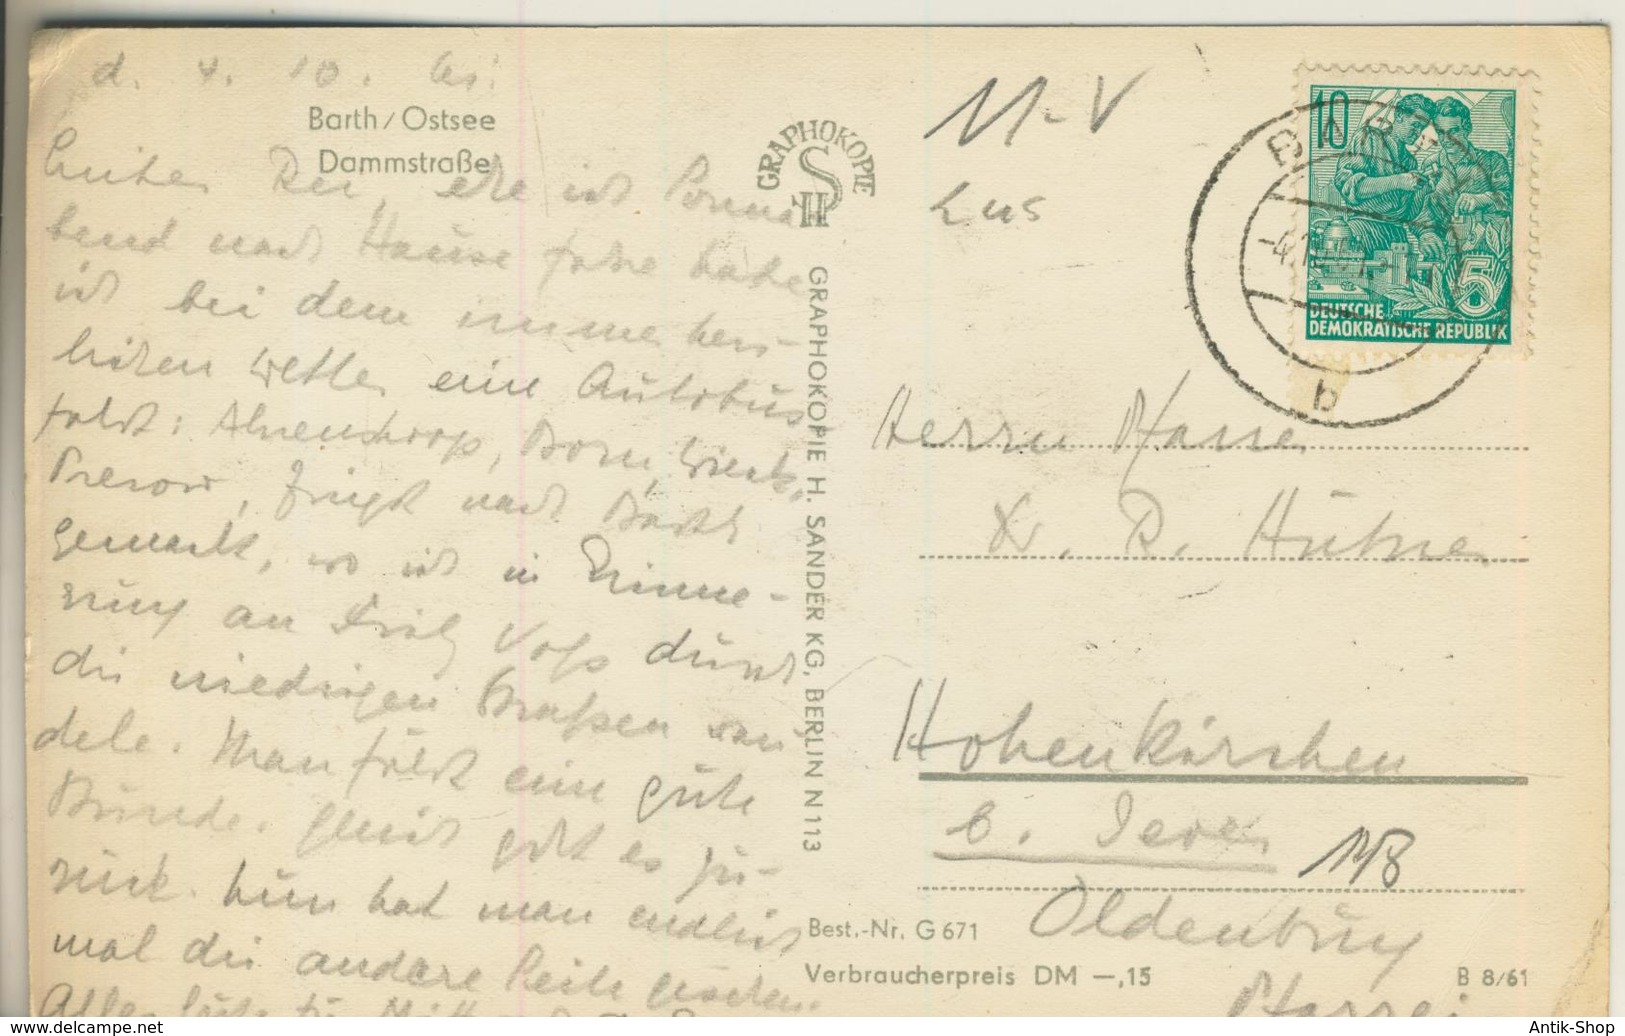 d. 4. 10. 61.
Barth/Ostsee
Dammstraße
Lieber Rei, ehe ich Sonna-
bend nach Hause fahre habe
ich bei dem immer herr-
lichen Wetter eine Autobus
fahrt: Ahrenshoop, Born, Wieck,
Prerow, Zingst nach Barth
gemacht, wo ich in Erinne-
rung an Voß durch
die niedrigen Straßen wan
dele. Man fühlt eine gute
Stunde. Gleich geht es zu-
rück. Nun hat man endlich
mal die andere Seite gesehen.
Alles Gute
GRAPHOKOPIE
H S
GRAPHOKOPIE H. SANDER KG, BERLIN N 113
11-V
Lus
10
5
DEUTSCHE
DEMOKRATISCHE REPUBLIK
BARTH
-4.10.61
b
Herrn Pfarrer
Dr. R. Hübner
Hohenkirchen
b. Jever
Oldenburg
Pfarrei
Best.-Nr. G 671
Verbraucherpreis DM —,15
B 8/61
Antik-Shop